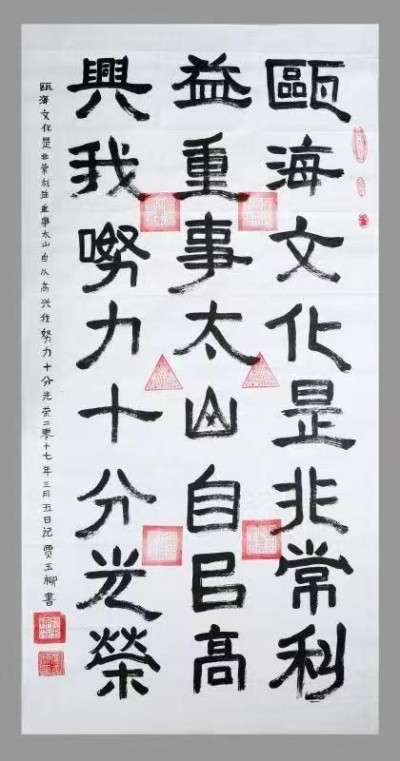 甌海文化是非常利
益重事太山自㠯高
興我努力十分光榮
甌海文化是非常利益重事太山自以高兴我努力十分光荣二零十七年三月五日记 贾玉卿书